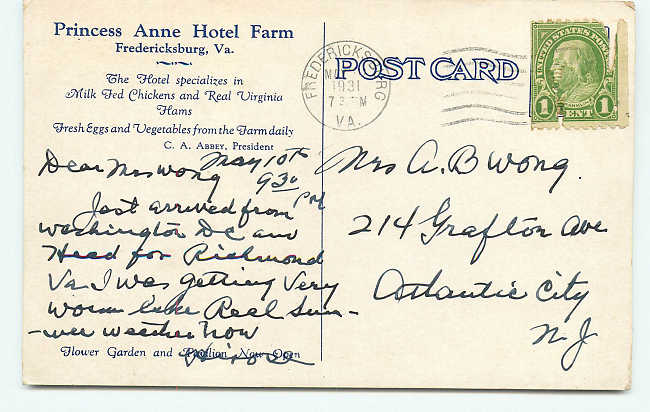 Princess Anne Hotel Farm
Fredericksburg, Va.
The Hotel specializes in
Milk Fed Chickens and Real Virginia
Hams
Fresh Eggs and Vegetables from the Farm daily
C. A. ABBEY, President
Dear Mrs Wong May 10th
9 30 PM
Just arrived from
Washington DC and
Head for Richmond
Va. I was getting Very
worm like Real Sum-
-mer weather now
Flower Garden and Pavilion Now Open
POST CARD
FREDERICKSBURG
1931
VA.
UNITED STATES POSTAGE
1 CENT 1
Mrs A. B Wong.
214 Grafton Ave
Atlantic City
N. J